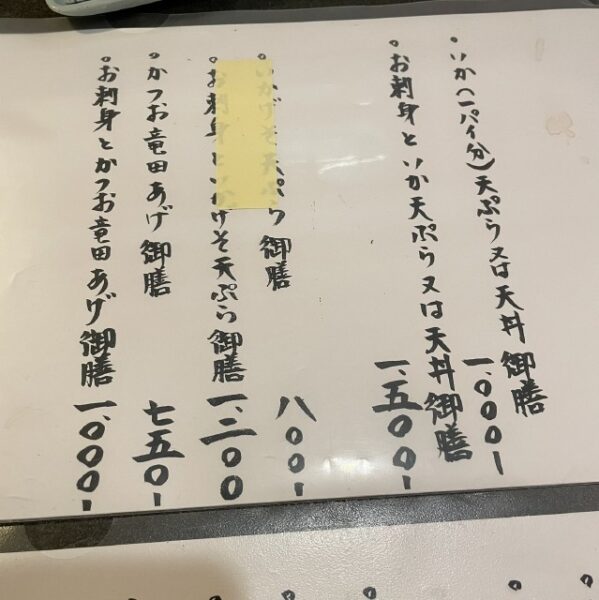 。いか(一パイ分)天ぷら又は天丼御膳 一、〇〇〇-
。お刺身といか天ぷら又は天丼御膳 一、五〇〇-
。いかげそ天ぷら御膳 八〇〇-
。お刺身といかげそ天ぷら御膳 一、二〇〇
。かつお竜田あげ御膳 七五〇-
。お刺身とかつお竜田あげ御膳 一、〇〇〇-